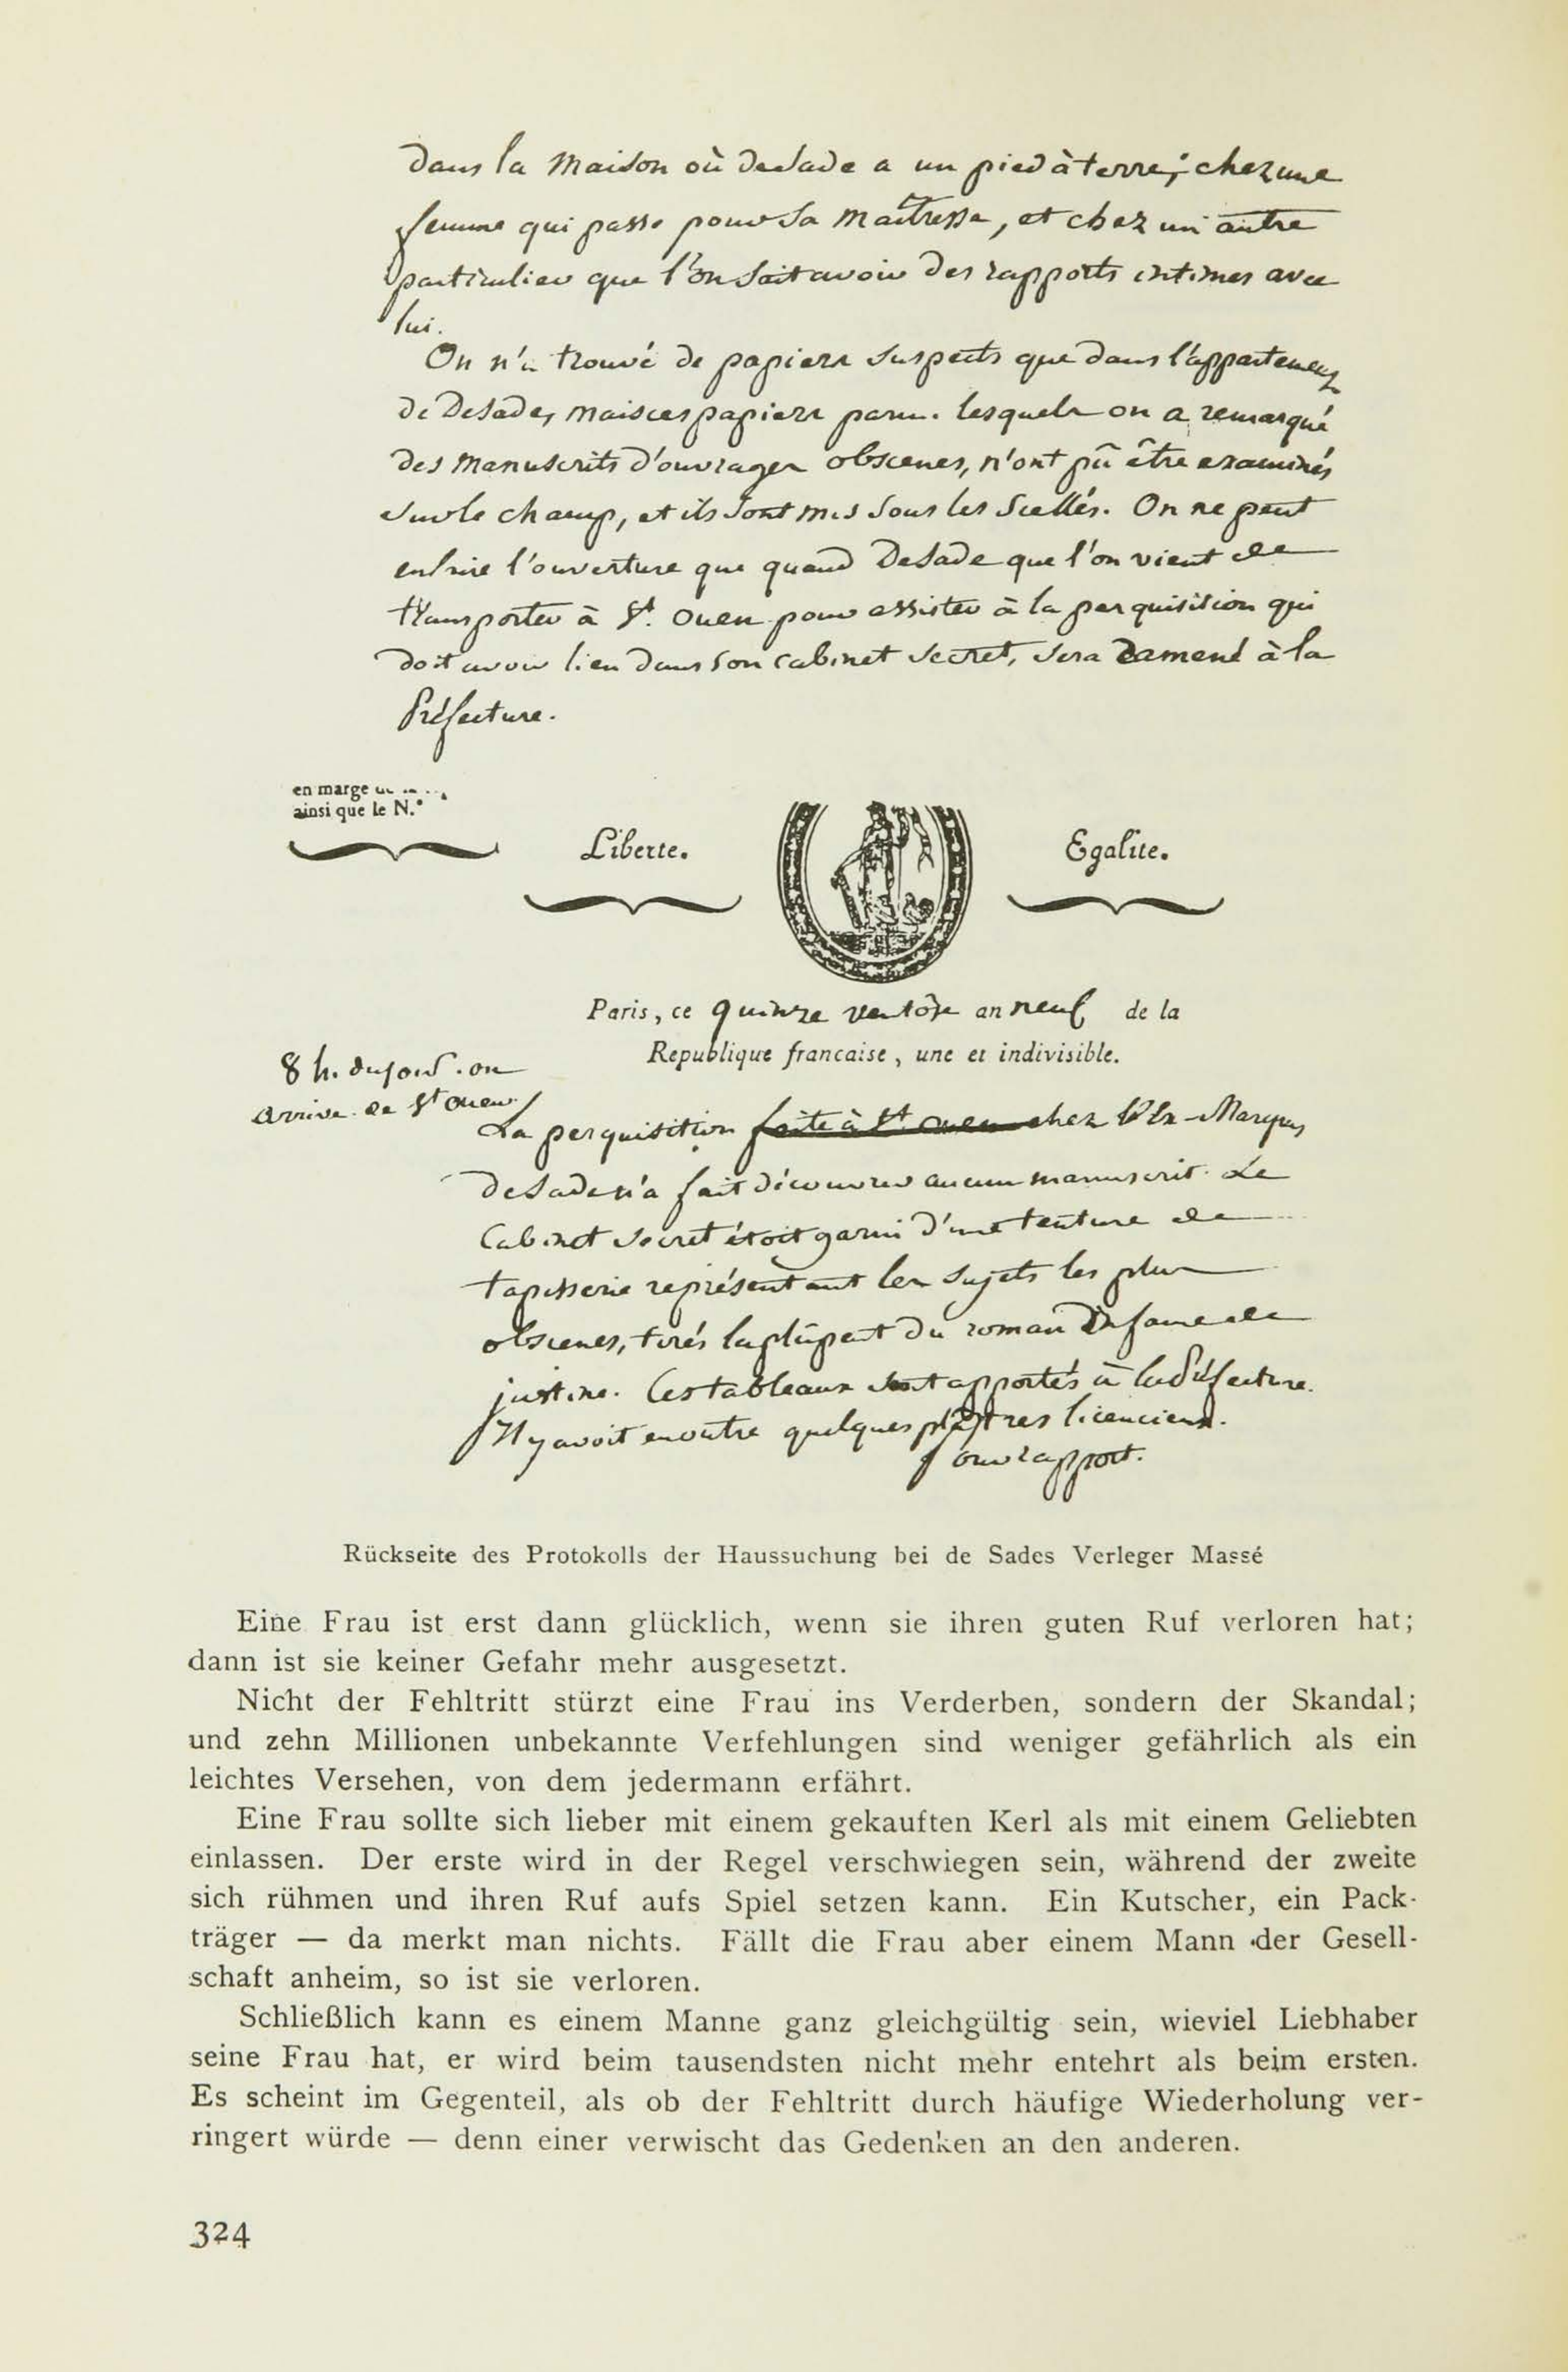 dans la Maison où deSade a un pied à terre; chez une
femme qui passe pour Sa Maîtresse, et chez un autre
particulier que l'on Sait avoir des rapports intimes avec
lui.
On n'a trouvé de papiers Suspects que dans l'appartement
de DeSade, mais ces papiers parmi lesquels on a remarqué
des Manuscrits d'ouvrages obscenes, n'ont pû être examinés
Sur le champ, et ils Sont mis Sous les Scellés. On ne peut
en faire l'ouverture que quand DeSade que l'on vient de
transporter à St. Ouen pour assister à la perquisition qui
doit avoir lieu dans Son Cabinet Secret, Sera ramené à la
Préfecture.
en marge
ainsi que le N.°
Liberte. Egalite.
Paris, ce quinze ventôse an neuf de la
Republique francaise, une et indivisible.
8 h. du soir. on
arrive de St Ouen.
La perquisition faite à St ouen chez l'Ex-Marquis
DeSade n'a fait découvrir aucun manuscrit. Le
Cabinet Secret étoit garni d'une tenture de
tapisserie représentant les Sujets les plus
obscenes, tirés la plûpart du roman Infame de
justine. Ces tableaux Sont apportés à la Préfecture.
Il y avoit en outre quelques plâtres licencieux.
Pour rapport.
Rückseite des Protokolls der Haussuchung bei de Sades Verleger Massé
Eine Frau ist erst dann glücklich, wenn sie ihren guten Ruf verloren hat;
dann ist sie keiner Gefahr mehr ausgesetzt.
Nicht der Fehltritt stürzt eine Frau ins Verderben, sondern der Skandal;
und zehn Millionen unbekannte Verfehlungen sind weniger gefährlich als ein
leichtes Versehen, von dem jedermann erfährt.
Eine Frau sollte sich lieber mit einem gekauften Kerl als mit einem Geliebten
einlassen. Der erste wird in der Regel verschwiegen sein, während der zweite
sich rühmen und ihren Ruf aufs Spiel setzen kann. Ein Kutscher, ein Pack-
träger — da merkt man nichts. Fällt die Frau aber einem Mann der Gesell-
schaft anheim, so ist sie verloren.
Schließlich kann es einem Manne ganz gleichgültig sein, wieviel Liebhaber
seine Frau hat, er wird beim tausendsten nicht mehr entehrt als beim ersten.
Es scheint im Gegenteil, als ob der Fehltritt durch häufige Wiederholung ver-
ringert würde — denn einer verwischt das Gedenken an den anderen.
324